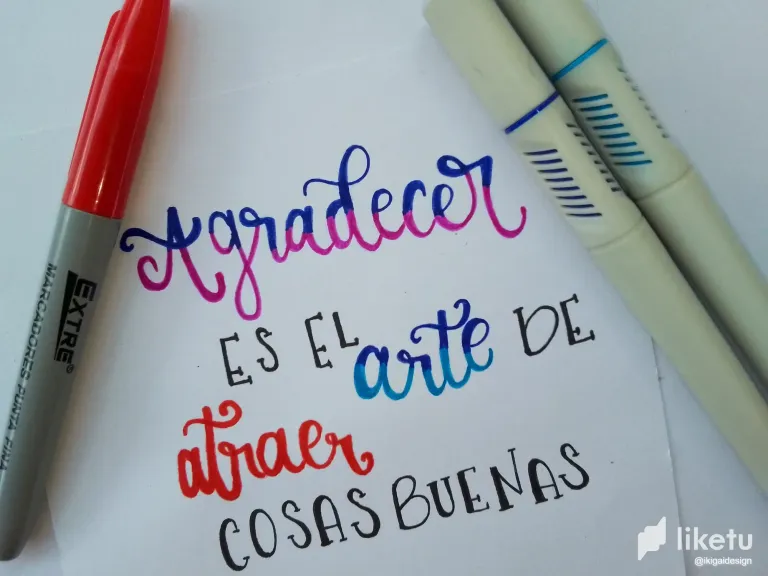 Agradecer
ES EL arte DE
atraer
COSAS BUENAS
EXTRE®
MARCADORES PUNTA FINA
liketu
@ikigaidesign